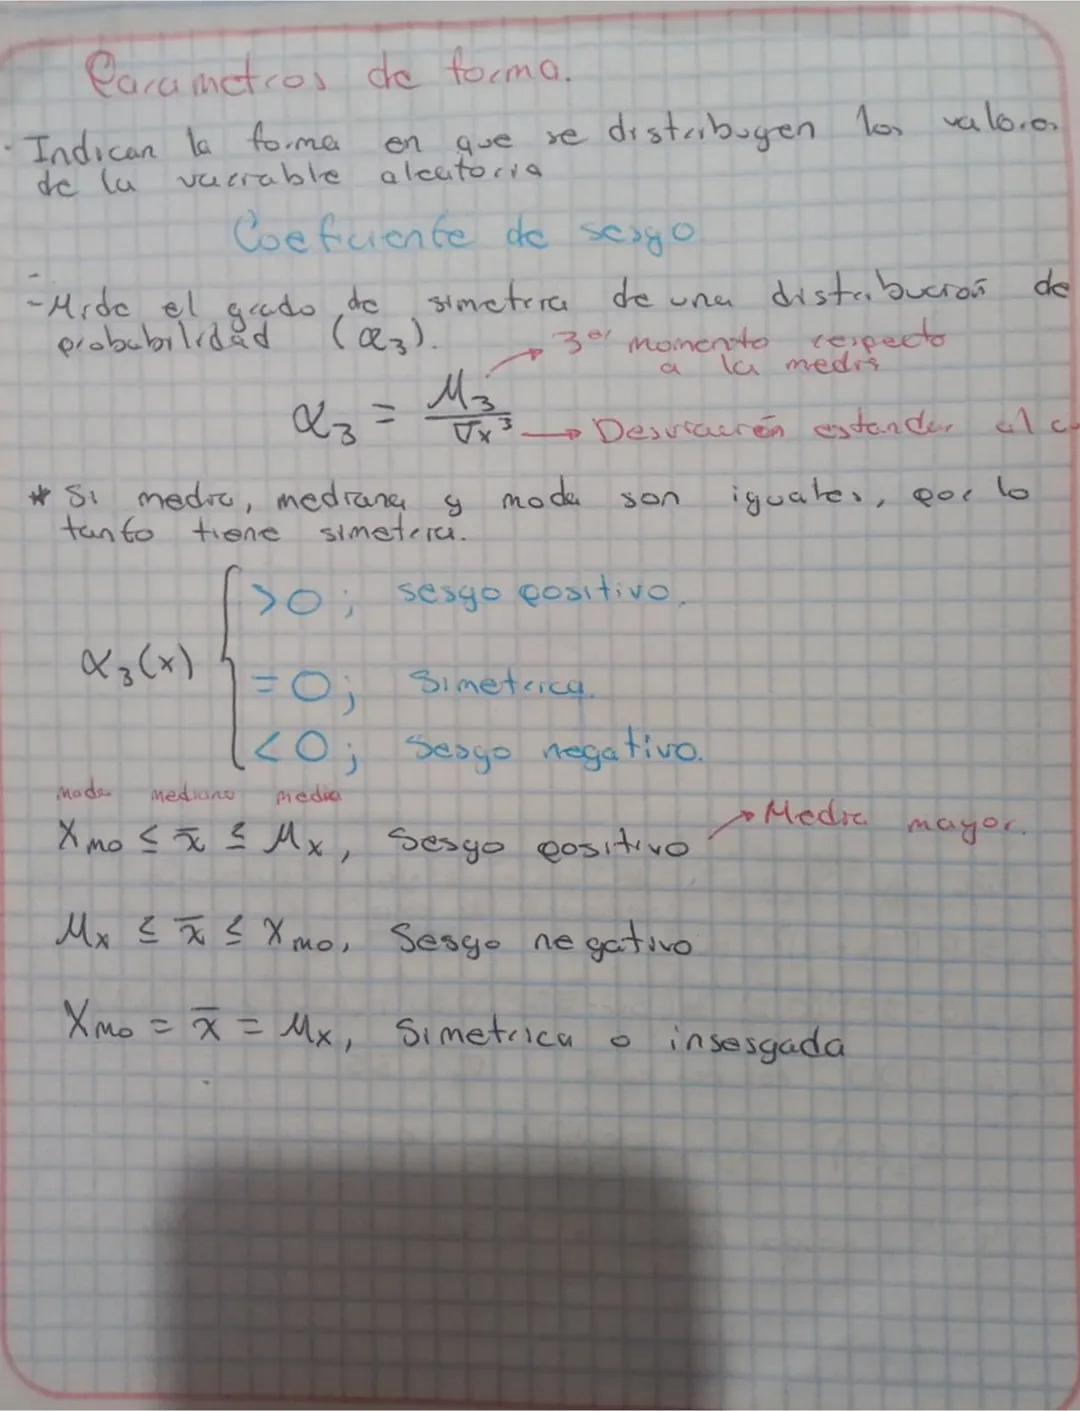 Parametros de forma.
- Indican la forma en que se distribuyen los valores
de la variable aleatoria
Coeficiente de sesgo
- Mide el grado de simetria de una distribución de
probabilidad (α₃).
→ 3er momento respecto
a la media
α₃ = M₃ / σx³ → Desviación estandar al
* Si media, mediana y moda son iguales, por lo
tanto tiene simetria.
>0; sesgo positivo.
α₃(x) { =0; Simetrica.
<0; Sesgo negativo.
moda mediana media
Xmo ≤ x̄ ≤ Mx, Sesgo positivo → Media mayor.
Mx ≤ x̄ ≤ Xmo, Sesgo negativo
Xmo = x̄ = Mx, Simetrica o insesgada